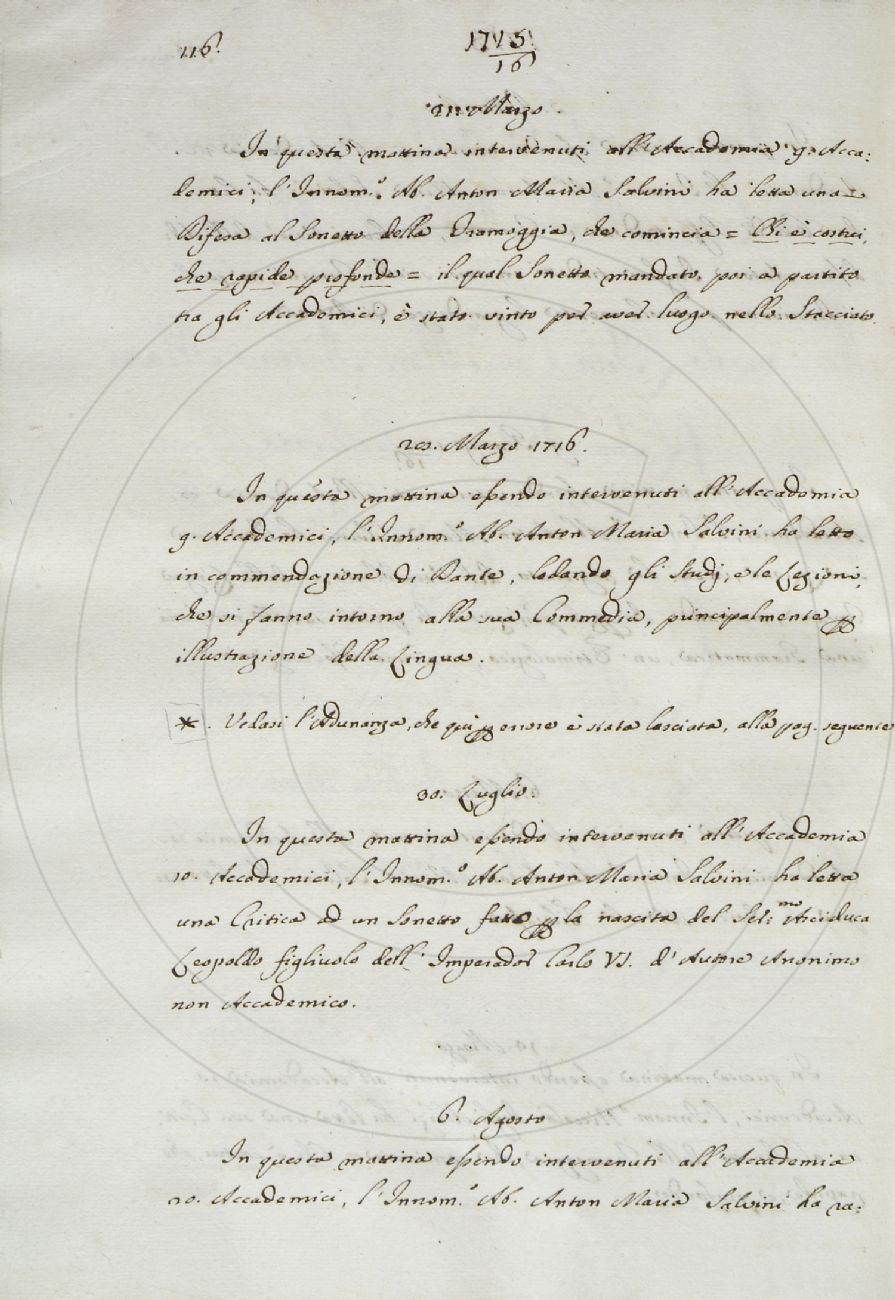 116.
1715.
16
Marzo.
In questa mattina intervenuti all'Accademia 9. Acca:
demici, l'Innom.º Ab. Anton Maria Salvini ha letta una
Difesa al Sonetto della Tramoggia, che comincia = Chi è costui,
che rapide profonde = il qual Sonetto mandato poi a partito
tra gli Accademici, è stato vinto per aver luogo nello Stacciato.
Marzo 1716.
In questa mattina essendo intervenuti all'Accademia
9. Accademici, l'Innom.º Ab. Anton Maria Salvini ha letto
in commendazione di Dante, lodando gli Studj, e le Lezioni,
che si fanno intorno alla sua Commedia, principalmente p
illustrazione della Lingua.
*. Vedasi l'Adunanza, che quì p errore è stata lasciata, alla pag. seguente
30. Luglio.
In questa mattina essendo intervenuti all'Accademia
10. Accademici, l'Innom.º Ab. Anton Maria Salvini ha letta
una Critica ad un Sonetto fatto p la nascita del Ser:mo Arciduca
Leopoldo figliuolo dell'Imperador Carlo VI. d'Autore Anonimo
non Accademico.
6. Agosto
In questa mattina essendo intervenuti all'Accademia
10. Accademici, l'Innom.º Ab. Anton Maria Salvini ha ra: